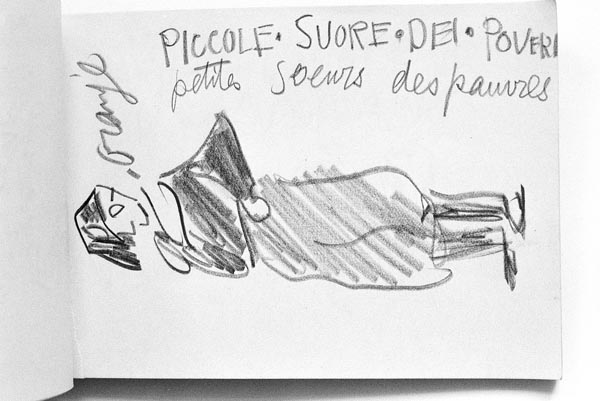 PICCOLE · SUORE · DEI · POVERI
petites soeurs des pauvres
orange